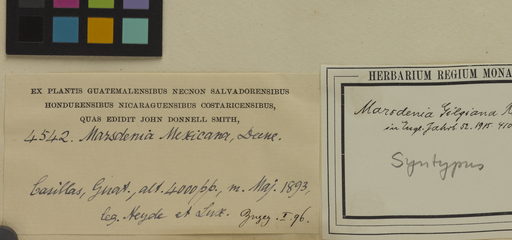 EX PLANTIS GUATEMALENSIBUS NECNON SALVADORENSIBUS
HONDURENSIBUS NICARAGUENSIBUS COSTARICENSIBUS,
QUAS EDIDIT JOHN DONNELL SMITH,
4542. Marsdenia Mexicana, Dcne.
Casillas, Girat., alt. 4000 pp., m. Maj. 1893,
leg. Heyde et Lux. I. 96.
HERBARIUM REGIUM MONA
Marsdenia Gilgiana
in Engl. Jahrb 52. 1915.
Syntypus